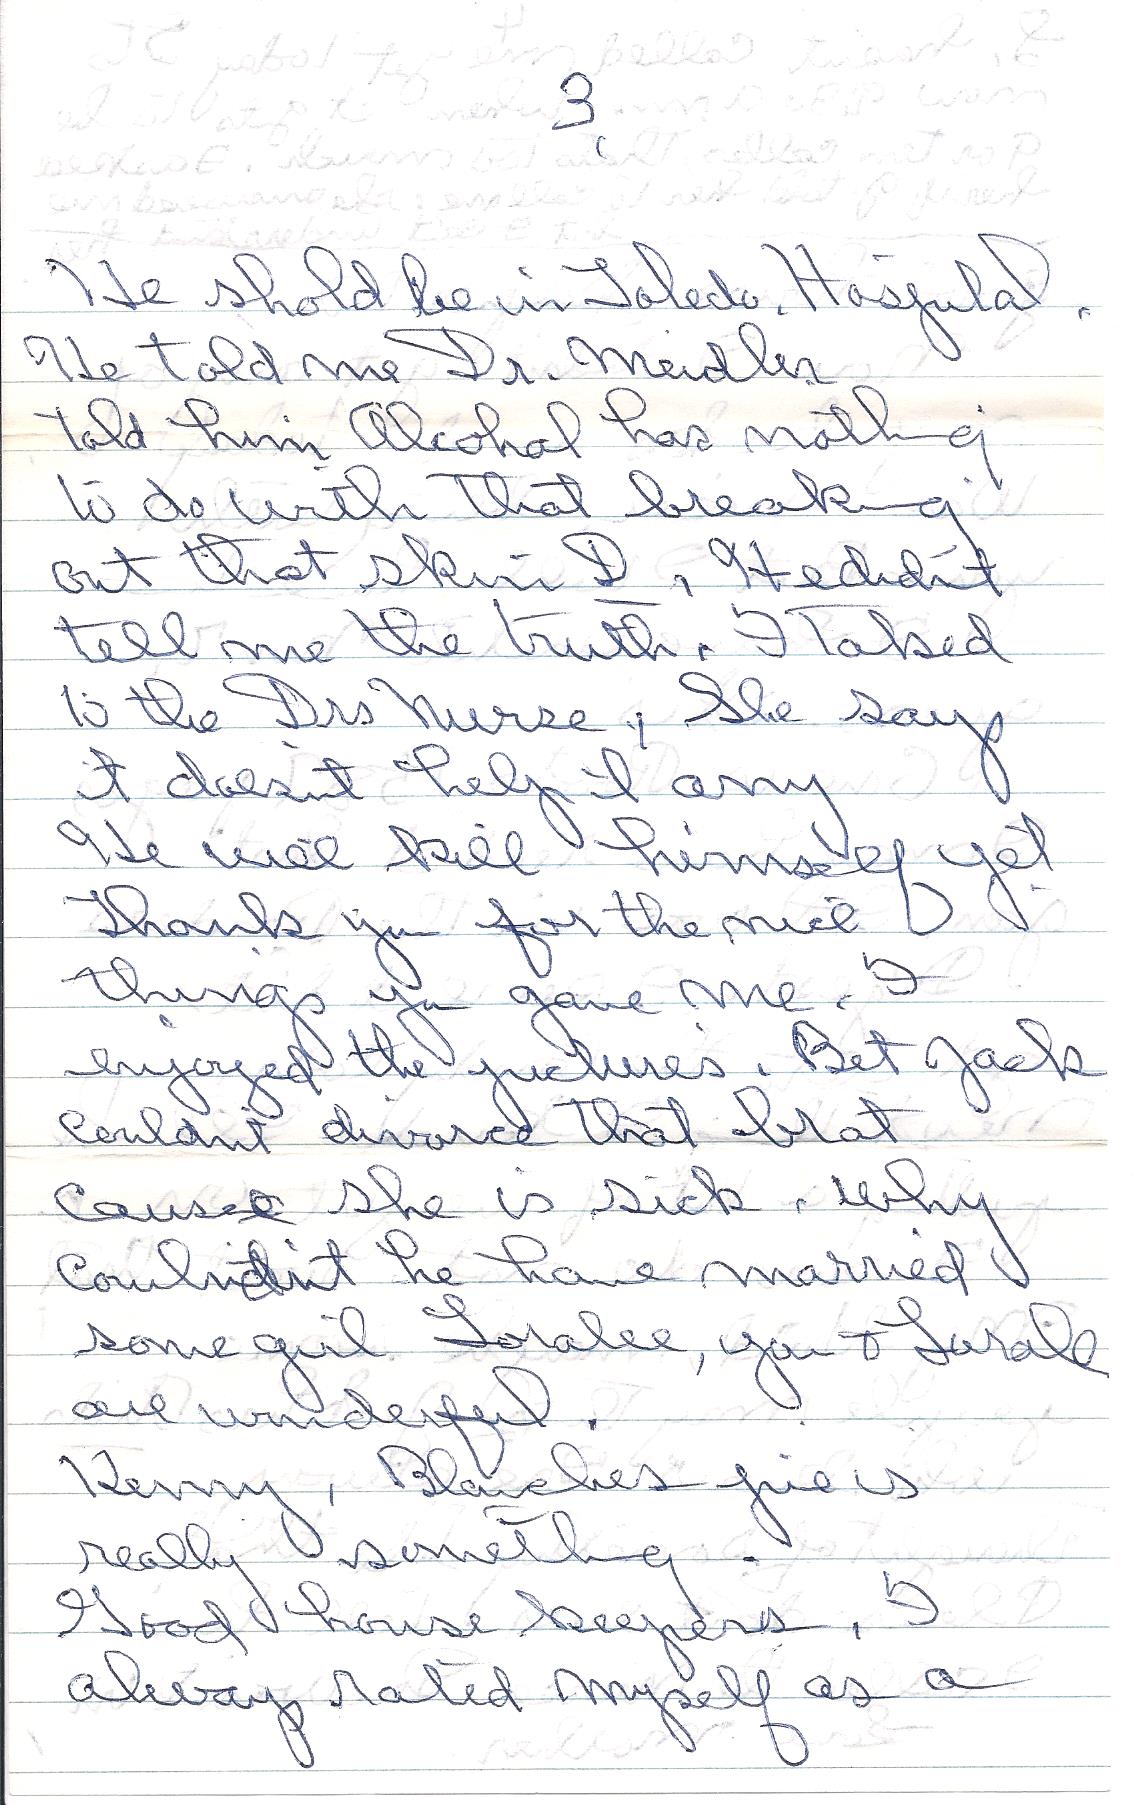 3.
He shold be in Toledo. Hospital.
He told me Dr. Meidler
told him Alcohol has nothing
to do with that breaking
out that skin D, He didn't
tell me the truth. I Talked
to the Drs Nurse, She says
it doesn't help it any
He will kill himself yet
Thanks you for the nice
things you gave me. I
enjoyed the pictures. Bet Jack
couldnt divorce that brat
cause she is sick. Why
couldn't he have married
some girl Loralee, you & Loralee
are wonderful.
Kenny, Blanches pie is
really something.
Good house keepers, I
always rated myself as a